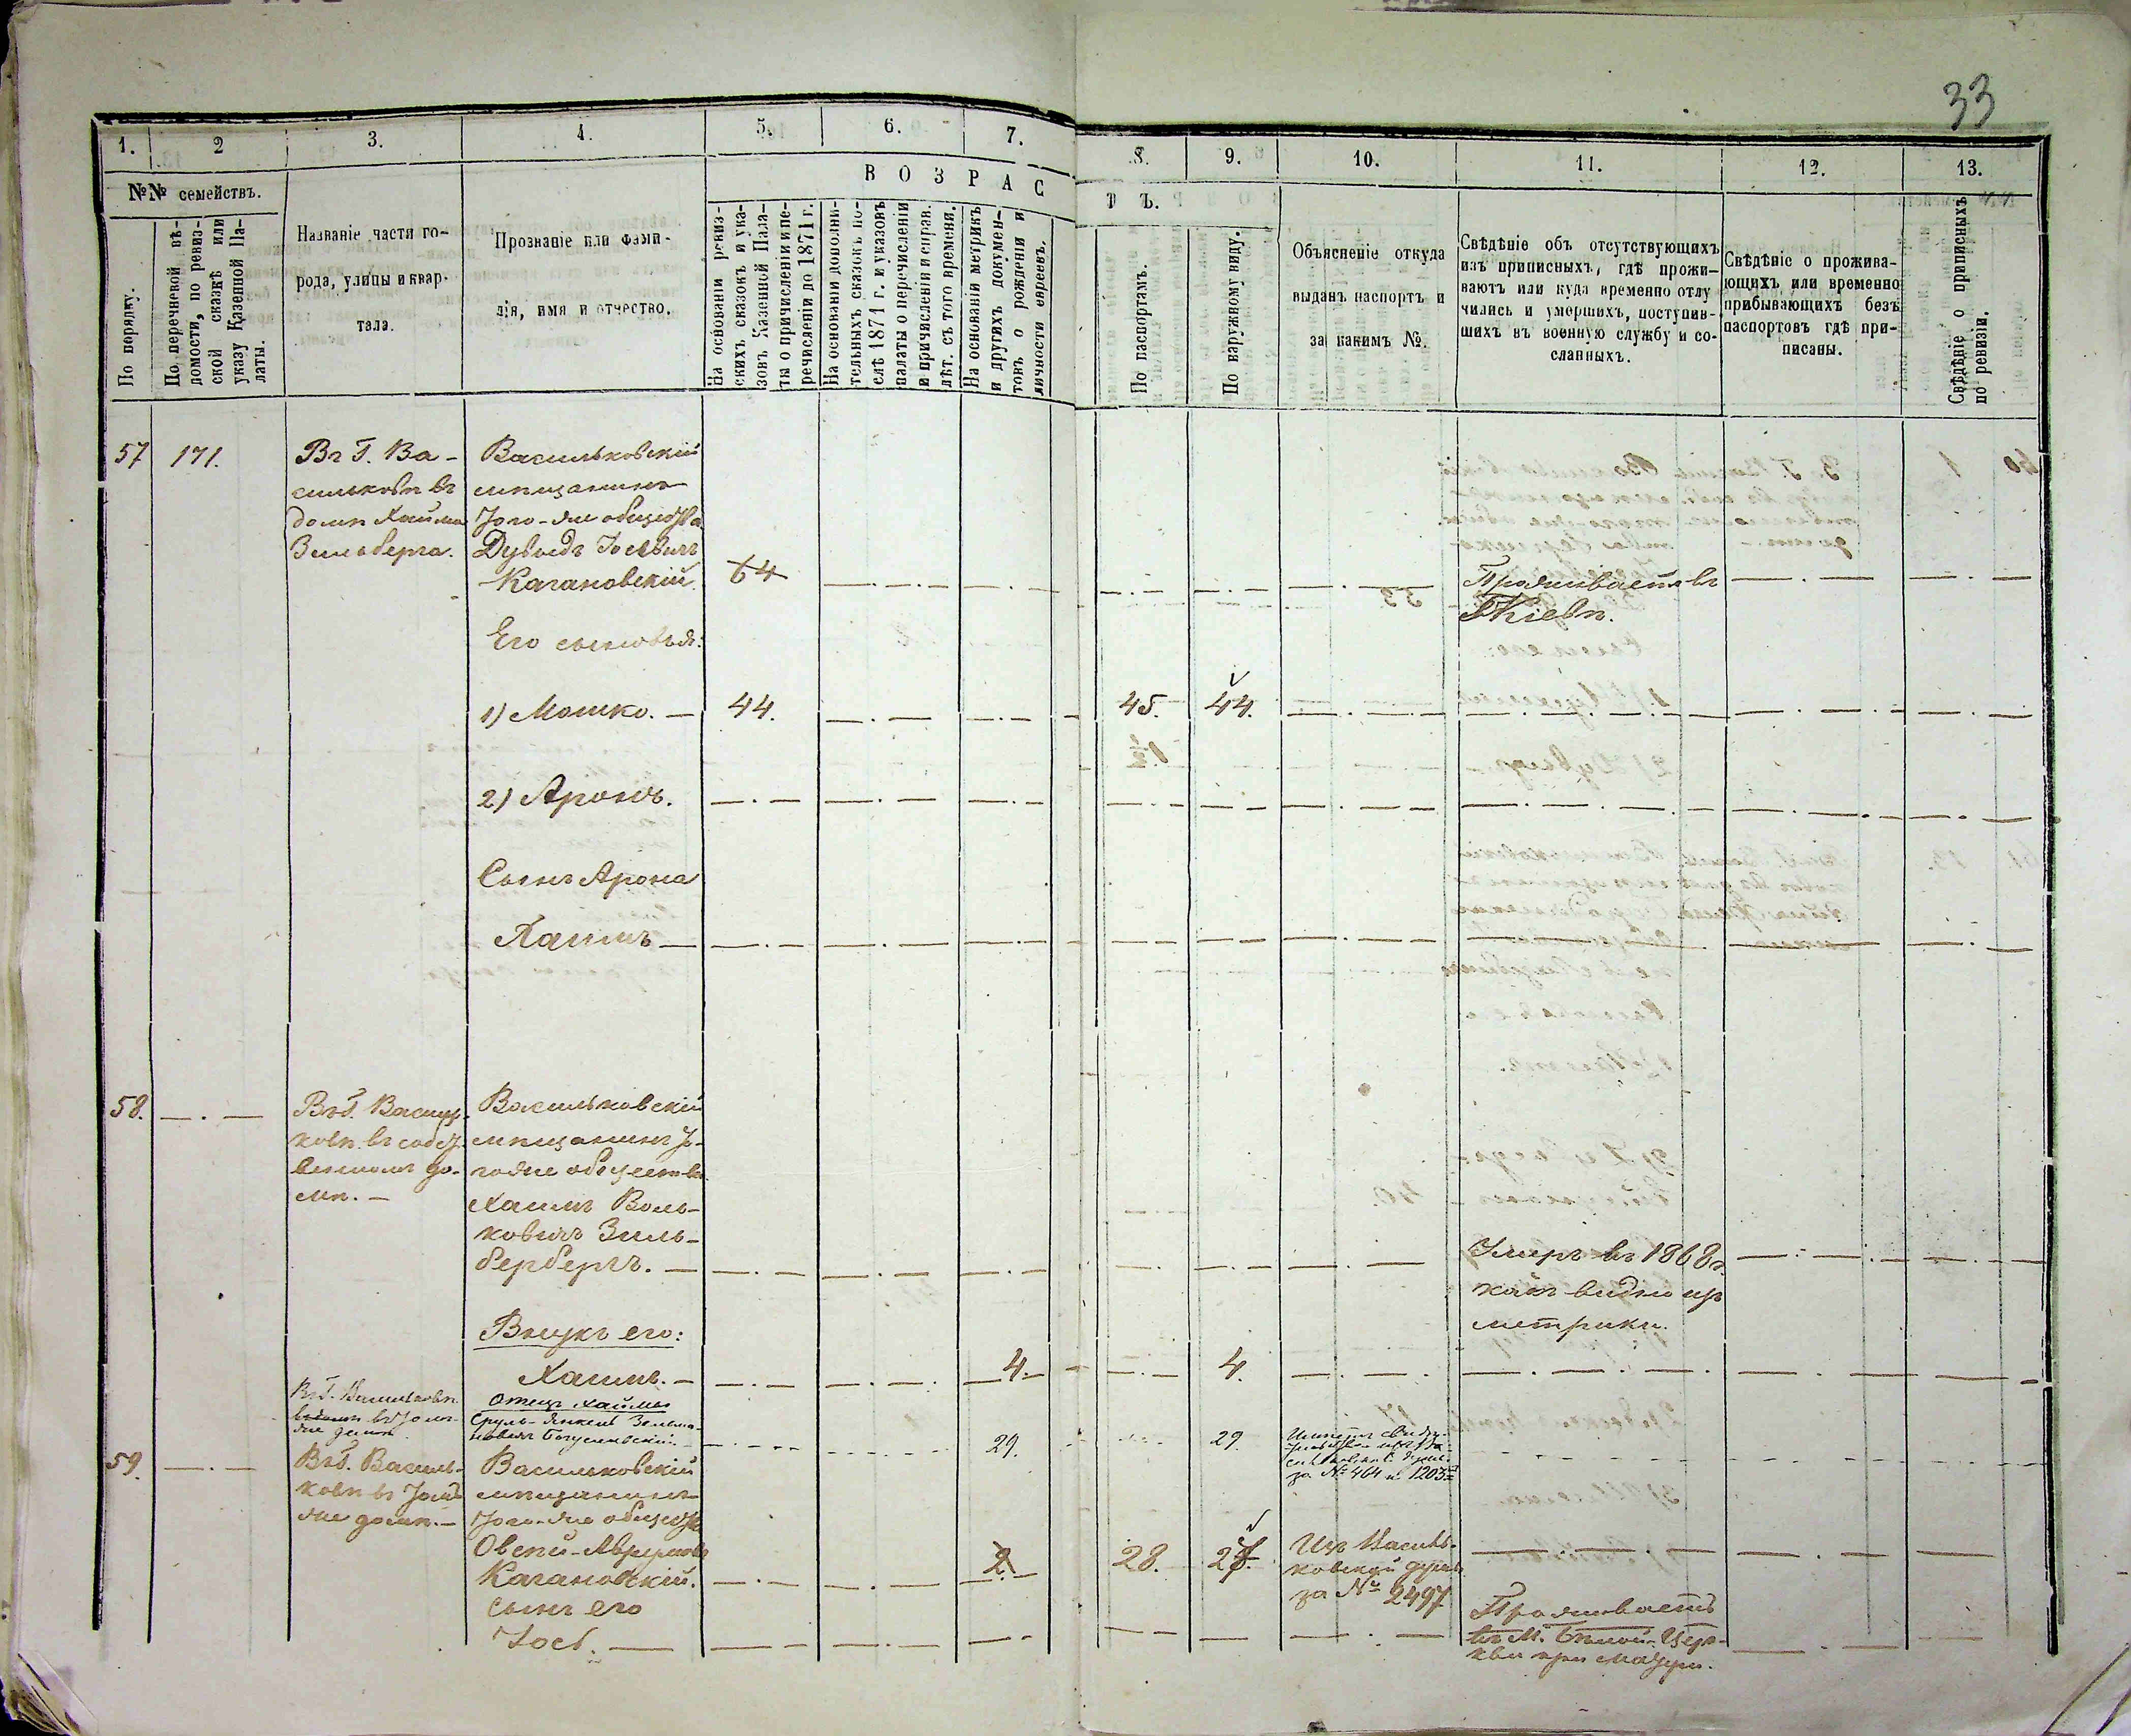 33
1. 2 3. 4. 5. 6. 7. 8. 9. 10. 11. 12. 13.
№№ семействъ.
В О З Р А С Т Ъ.
По порядку.
По перечневой вѣ-
домости, по ревиз-
ской сказкѣ или
указу Казенной Па-
латы.
Названіе части го-
рода, улицы и квар-
тала.
Прозваніе или фами-
лія, имя и отчество.
На основаніи ревиз-
скихъ сказокъ и ука-
зовъ Казенной Пала-
ты о причисленіи и пе-
речисленіи до 1871 г.
На основаніи дополни-
тельныхъ сказокъ по-
слѣ 1871 г. и указовъ
палаты о перечисленіи
и причисленіи и справ.
лѣт. съ того времени.
На основаніи метрикъ
и другихъ докумен-
товъ о рожденіи и
личности евреевъ.
По паспортамъ.
По наружному виду.
Объясненіе откуда
выданъ паспортъ и
за какимъ №.
Свѣдѣніе объ отсутствующихъ
изъ приписныхъ, гдѣ прожи-
ваютъ или куда временно отлу
чились и умершихъ, поступив-
шихъ въ военную службу и со-
сланныхъ.
Свѣдѣніе о прожива-
ющихъ или временно
прибывающихъ безъ
паспортовъ гдѣ при-
писаны.
Свѣдѣніе о приписныхъ
по ревизіи.
57 171.
Въ Г. Ва-
сильковѣ въ
домѣ Хаима
Зильберга.
Васильковскій
мѣщанинъ
того-же общества
Дувидъ Іосевичъ
Кагановскій. 64
Проживаетъ въ
Кіевѣ.
Его сыновья:
1) Мошко. — 44. 45. 44.
1½
2) Аронъ.
Сынъ Арона
Хаимъ —
58.
Въ Г. Василь-
ковѣ въ собст-
венномъ до-
мѣ. —
Васильковскій
мѣщанинъ то-
го же общества
Хаимъ Воль-
ковичъ Зиль-
берберъ. —
Умеръ въ 1868 г.
какъ видно изъ
метрики.
Внукъ его:
Хаимъ. — 4. 4.
Въ Г. Васильковѣ
въ томъ-
же домѣ.
Отецъ Хаима
Сруль-Янкель Зельма-
новичъ Богуславскій. 29. 29.
за № 464 и 1203
59.
Въ Г. Василь-
ковѣ въ томъ
же домѣ. —
Васильковскій
мѣщанинъ
того-же общества
Овсѣй-Аврумовъ
Кагановскій. 2. 28. 27.
Изъ Василь-
ковской думы
за № 2497
сынъ его
Іось. —
Проживаетъ
въ М. Бѣлой Цер-
кви при матери.